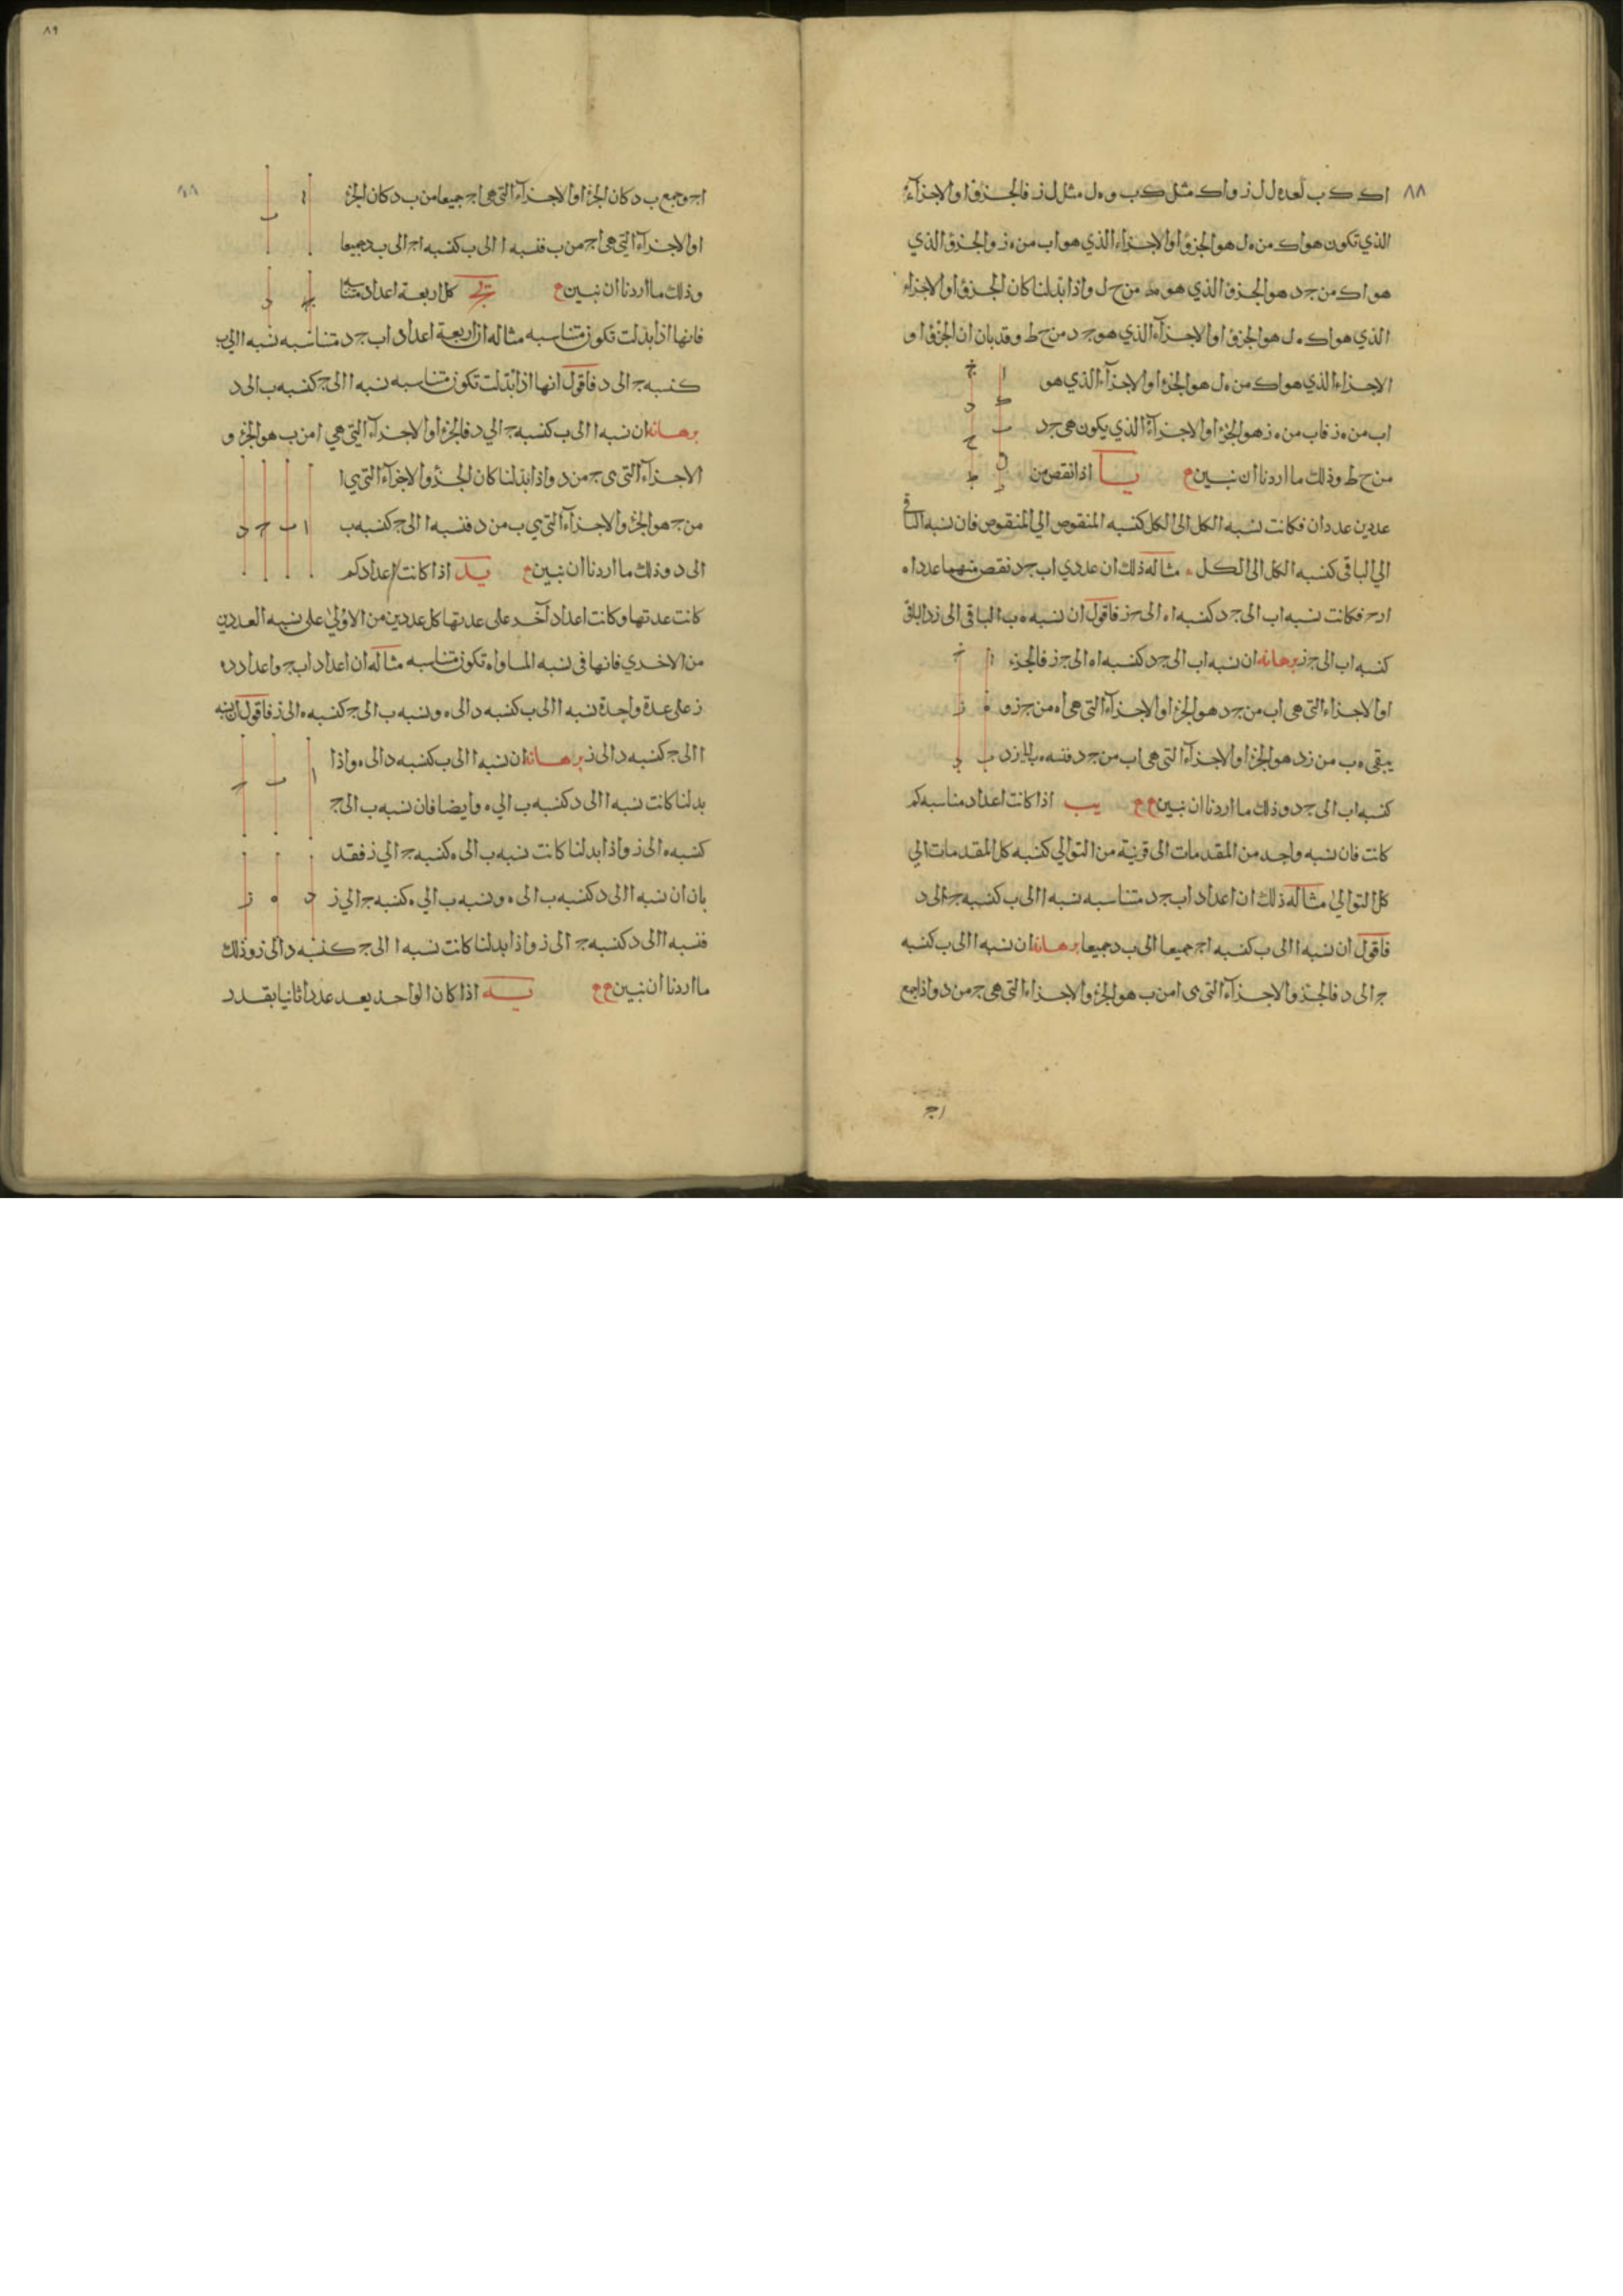 ٨٨
اك ك ب لعده ل ل ز واك مثل ك ب و ه ل مثل ل ز فالجزؤ او الاجزآء
الذي تكون هو اك من ه ل هو الجزؤ او الاجزاء الذي هو اب من ه ز والجزؤ الذي
هو اك من ج د هو الجزؤ الذي هو من ح ل واذا بدلنا كان الجزؤ او الاجزاء
الذي هو اك ه ل هو الجزؤ او الاجزآء الذي هو ج د من ح ط وقد بان ان الجزؤ او
الاجزاء الذي هو اك من ه ل هو الجزء او الاجزآء الذي هو
اب من ه ز فاب من ه ز هو الجزء او الاجزآء الذي يكون هى ج د
من ح ط وذلك ما اردنا ان نبين م يا اذا نقص من
عددين عددان فكانت نسبه الكل الى الكل كنسبه المنقوص الي المنقوص فان نسبه الباقى
الي الباقى كنسبه الكل الى الكل مثاله ذلك ان عددي اب ج د نقص منهما عددا ه
ا ر ح فكانت نسبه اب الى ج د كنسبه اه الى ج ز فاقول ان نسبه ه ب الباقى الى ز د الباقى
كنسبه اب الى ج ز برهانه ان نسبه اب الى ج د كنسبه اه الى ج ز فالجزء
او الاجزاء التى هى اب من ج د هو الجزء او الاجزآء التى هى اه من ج ز و
يبقى ه ب من ز د هو الجزء او الاجزآء التى هى اب من ج د فنسبه ه ب الى ز د
كنسبه اب الى ج د وذلك ما اردنا ان نبين م م يب اذا كانت اعداد مناسبه كم
كانت فان نسبه واحد من المقدمات الى قرينة من التوالي كنسبه كل المقدمات الي
كل التوالي مثاله ذلك ان اعداد اب ج د متناسبه نسبه ا الى ب كنسبه ج الى د
فاقول ان نسبه ا الى ب كنسبه اج جميعا الى ب د جميعا برهانه ان نسبه ا الى ب كنسبه
ج الى د فالجزء والاجزآء التى هى ا من ب هو الجزء والاجزاء التى هى ج من د واذا جمع
اج
٨٩
اج وجمع ب د كان الجزء او الاجزآء التى هى اج جميعا من ب د كان الجزء
او الاجزآء التي هى اج من ب فنسبه ا الى ب كنسبه اج الى ب د جميعا
وذلك ما اردنا ان نبين م يج كل اربعة اعداد متناسبه
فانها اذا بدلت تكون متناسبه مثاله ان اربعة اعداد اب ج د متناسبه نسبه ا الى ب
كنسبه ج الى د فاقول انها اذا بدلت تكون متناسبه نسبه ا الى ج كنسبه ب الى د
برهانه ان نسبه ا الى ب كنسبه ج الي د فالجزء او الاجزآء التي هي ا من ب هو الجزء و
الاجزآء التى هى ج من د واذا ابدلنا كان الجزؤ والاجزآء التى هي ا
من ج هو الجزء والاجزآء التى هي ب من د فنسبه ا الى ج كنسبه ب
الى د وذلك ما اردنا ان نبين م يد اذا كانت اعداد كم
كانت عدتها وكانت اعداد آخر على عدتها كل عددين من الاولي على نسبه العددين
من الاخري فانها فى نسبه المساواه تكون متناسبه مثاله ان اعداد اب ج واعداد د ه
ز على عدة واحدة نسبه ا الى ب كنسبه د الى ه ونسبه ب الى ج كنسبه ه الى ز فاقول ان نسبه
ا الى ج كنسبه د الى ز برهانه ان نسبه ا الى ب كنسبه د الى ه واذا
بدلنا كانت نسبه ا الى د كنسبه ب الي ه وايضا فان نسبه ب الى ج
كنسبه ه الى ز واذا ابدلنا كانت نسبه ب الى ه كنسبه ج الي ز فقد
بان ان نسبه ا الى د كنسبه ب الى ه ونسبه ب الي ه كنسبه ج الي ز
فنسبه ا الى د كنسبه ج الى ز واذا بدلنا كانت نسبه ا الى ج كنسبه د الى ز وذلك
ما اردنا ان نبين م م يه اذا كان الواحد يعد عددا ثانيا بقدر